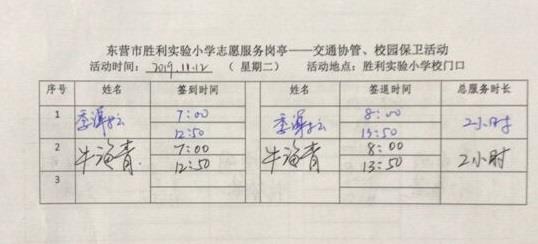 东营市胜利实验小学志愿服务岗亭——交通协管、校园保卫活动
活动时间：2019.11.12（星期二） 活动地点：胜利实验小学校门口
序号 姓名 签到时间 姓名 签退时间 总服务时长
1 7:00 8:00 2小时
12:50 13:50
2 牛海青 7:00 牛海青 8:00 2小时
12:50 13:50
3